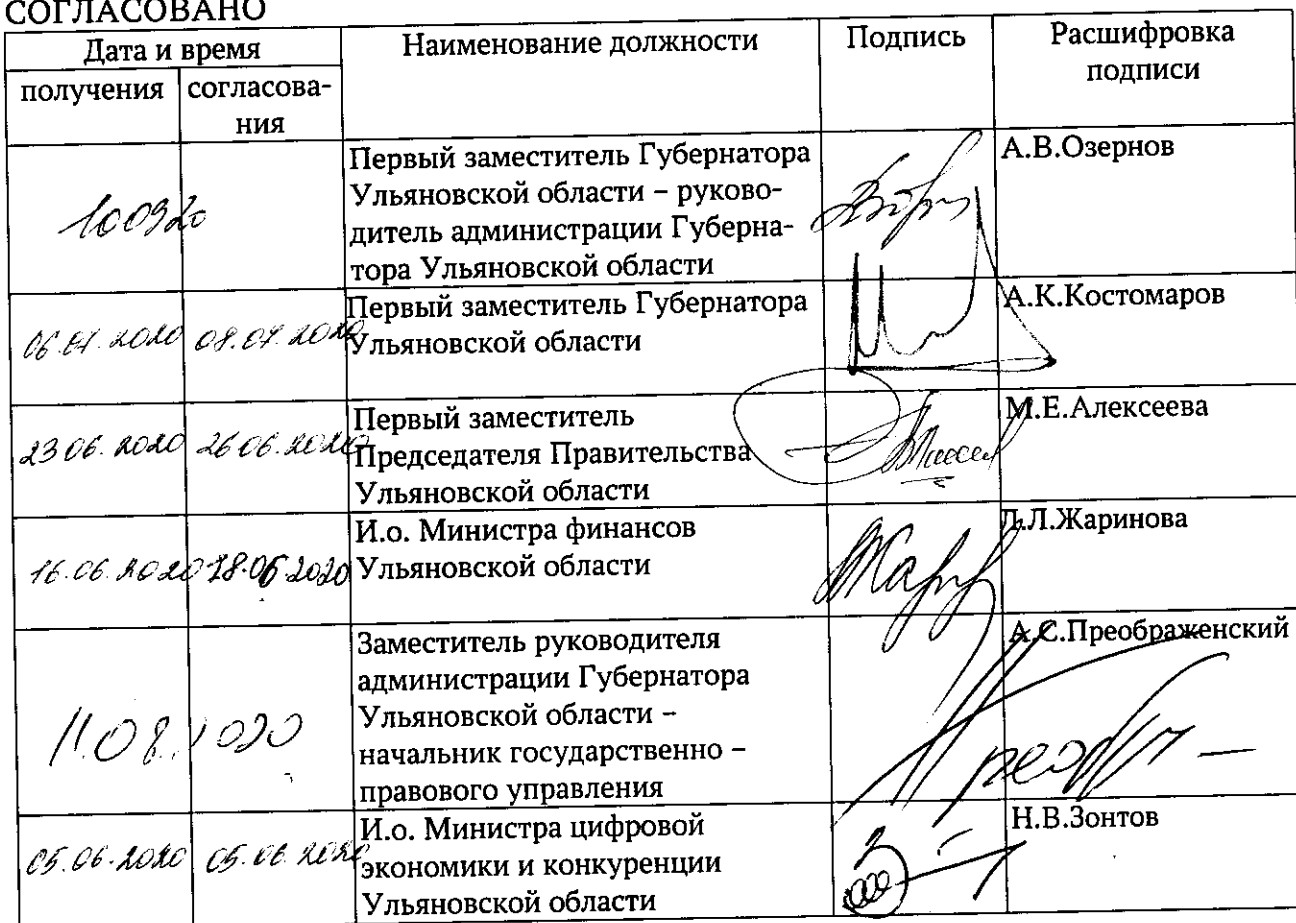 СОГЛАСОВАНО
Дата и время
Наименование должности
Подпись
Расшифровка
подписи
получения
согласова-
ния
100920
Первый заместитель Губернатора
Ульяновской области – руково-
дитель администрации Губерна-
тора Ульяновской области
А.В.Озернов
06.07.2020
Первый заместитель Губернатора
Ульяновской области
А.К.Костомаров
23 06. 2020
26 06. 2020
Первый заместитель
Председателя Правительства
Ульяновской области
М.Е.Алексеева
16.06.2020
18.06.2020
И.о. Министра финансов
Ульяновской области
Л.Жаринова
11.08.2020
Заместитель руководителя
администрации Губернатора
Ульяновской области –
начальник государственно –
правового управления
А.С.Преображенский
05.06.2020
05.06.2020
И.о. Министра цифровой
экономики и конкуренции
Ульяновской области
Н.В.Зонтов